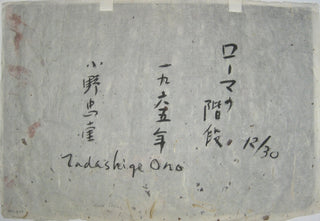 ローマの階段。
12/30
一九六五年
小野忠重
Tadashige Ono